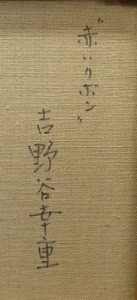 "赤いリボン"
吉野谷幸重